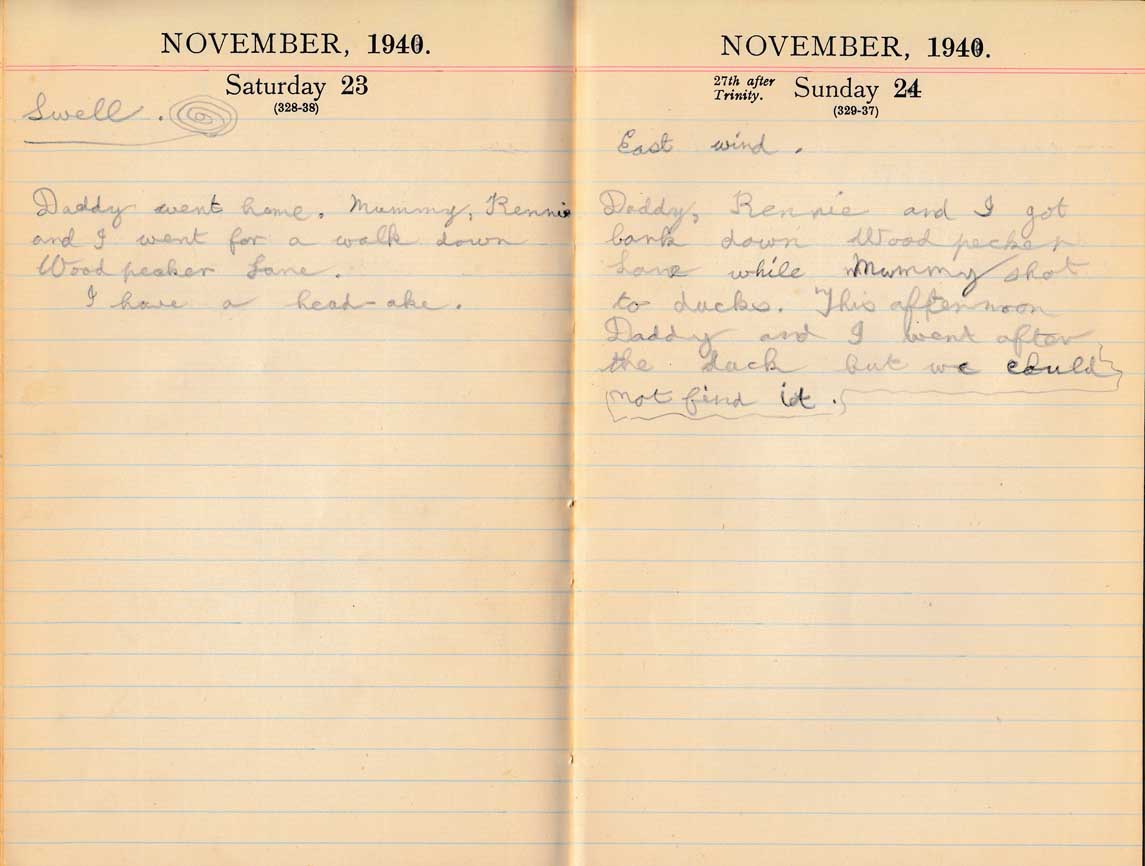 NOVEMBER, 1940.
Saturday 23
(328-38)
Swell.
Daddy went home. Mummy, Rennie
and I went for a walk down
Wood pecker Lane.
I have a head-ake.
NOVEMBER, 1940.
27th after
Trinity.
Sunday 24
(329-37)
East wind.
Daddy, Rennie and I got
bark down Wood pecker
Lane while Mummy shot
to ducks. This afternoon
Daddy and I went after
the duck but we could
not find it.